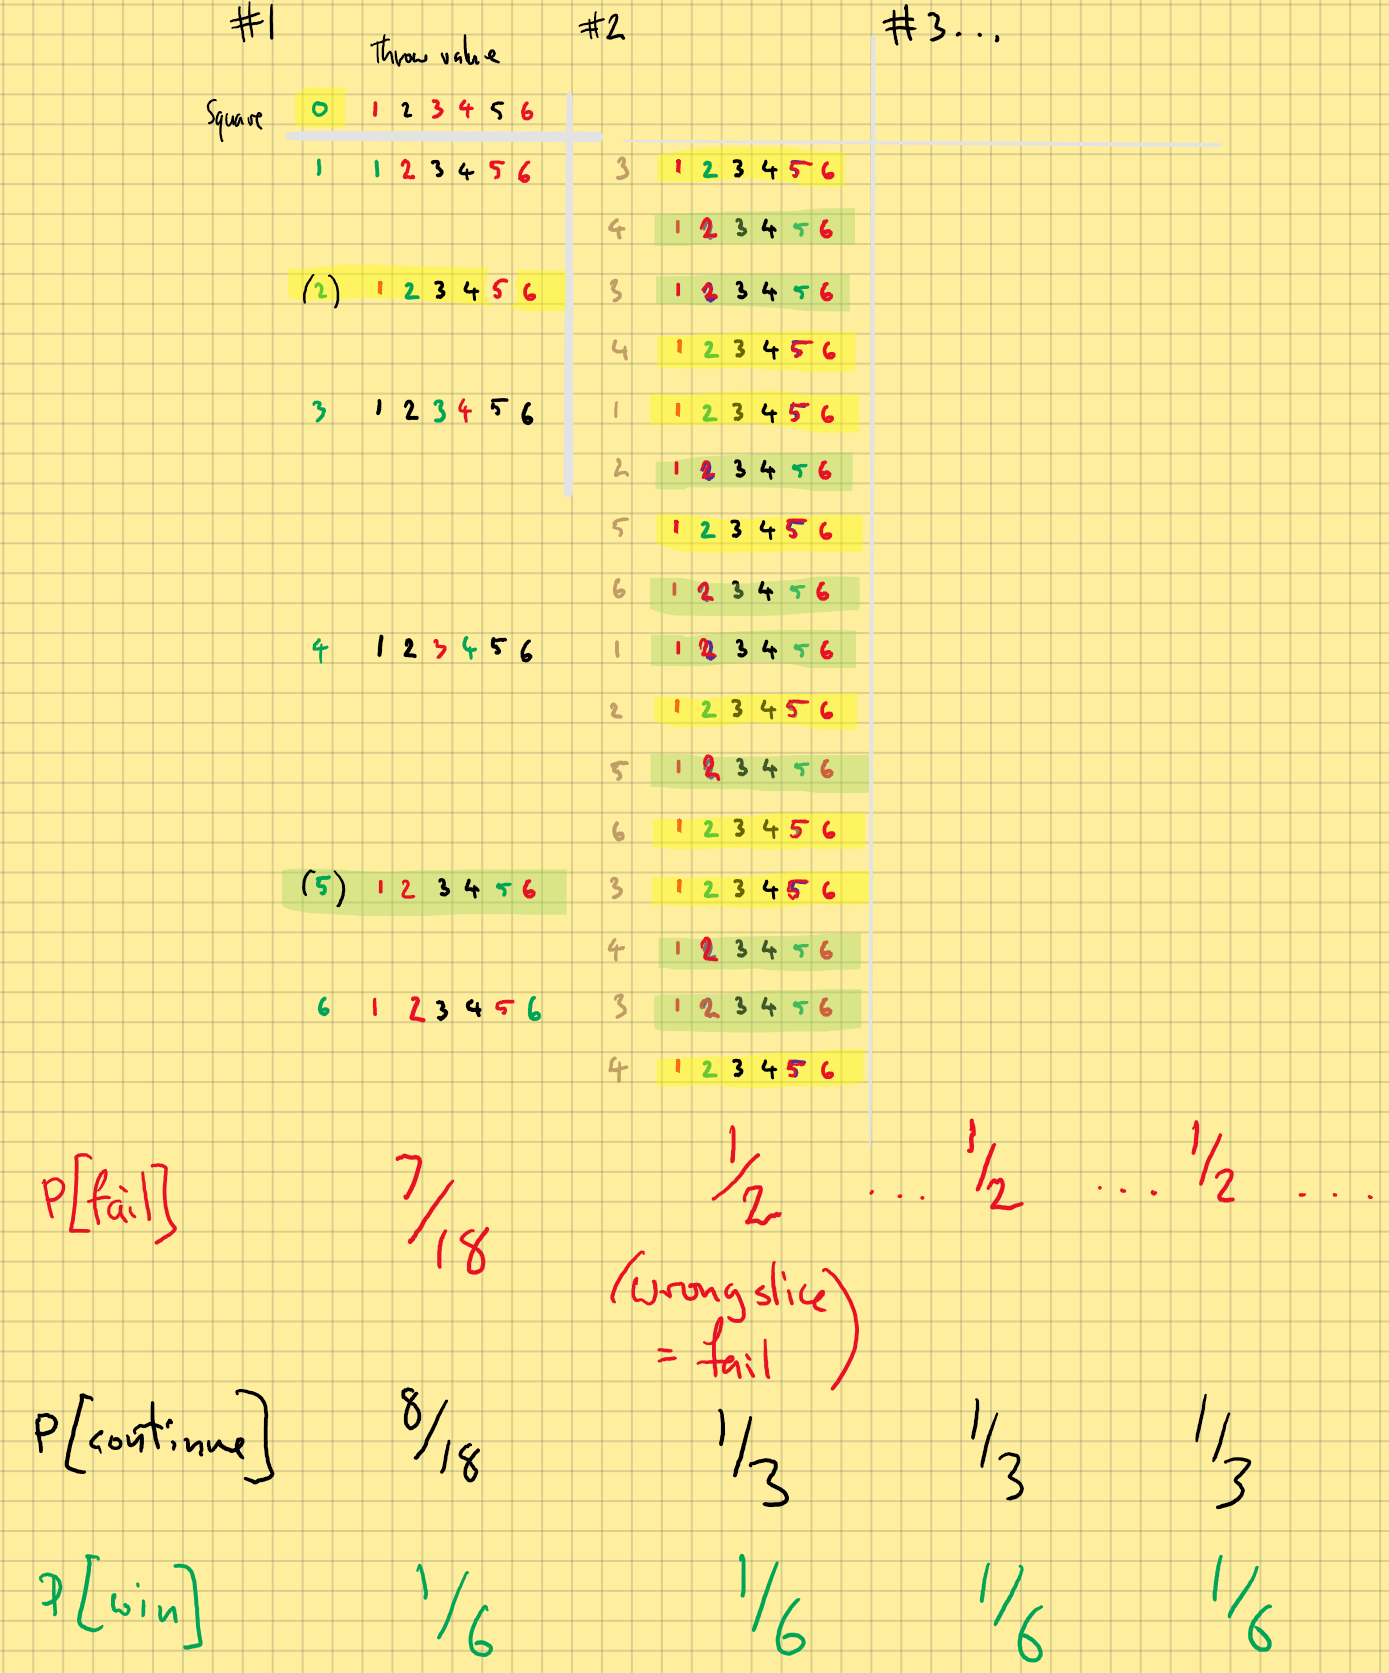 #1 #2 #3...
Throw value
Square 0 1 2 3 4 5 6
1 1 2 3 4 5 6 3 1 2 3 4 5 6
4 1 2 3 4 5 6
(2) 1 2 3 4 5 6 3 1 2 3 4 5 6
4 1 2 3 4 5 6
3 1 2 3 4 5 6 1 1 2 3 4 5 6
2 1 2 3 4 5 6
5 1 2 3 4 5 6
6 1 2 3 4 5 6
4 1 2 3 4 5 6 1 1 2 3 4 5 6
2 1 2 3 4 5 6
5 1 2 3 4 5 6
6 1 2 3 4 5 6
(5) 1 2 3 4 5 6 3 1 2 3 4 5 6
4 1 2 3 4 5 6
6 1 2 3 4 5 6 3 1 2 3 4 5 6
4 1 2 3 4 5 6
P[fail] 7/18 1/2 ... 1/2 .... 1/2 ....
(wrong slice
= fail)
P[continue] 8/18 1/3 1/3 1/3
P[win] 1/6 1/6 1/6 1/6